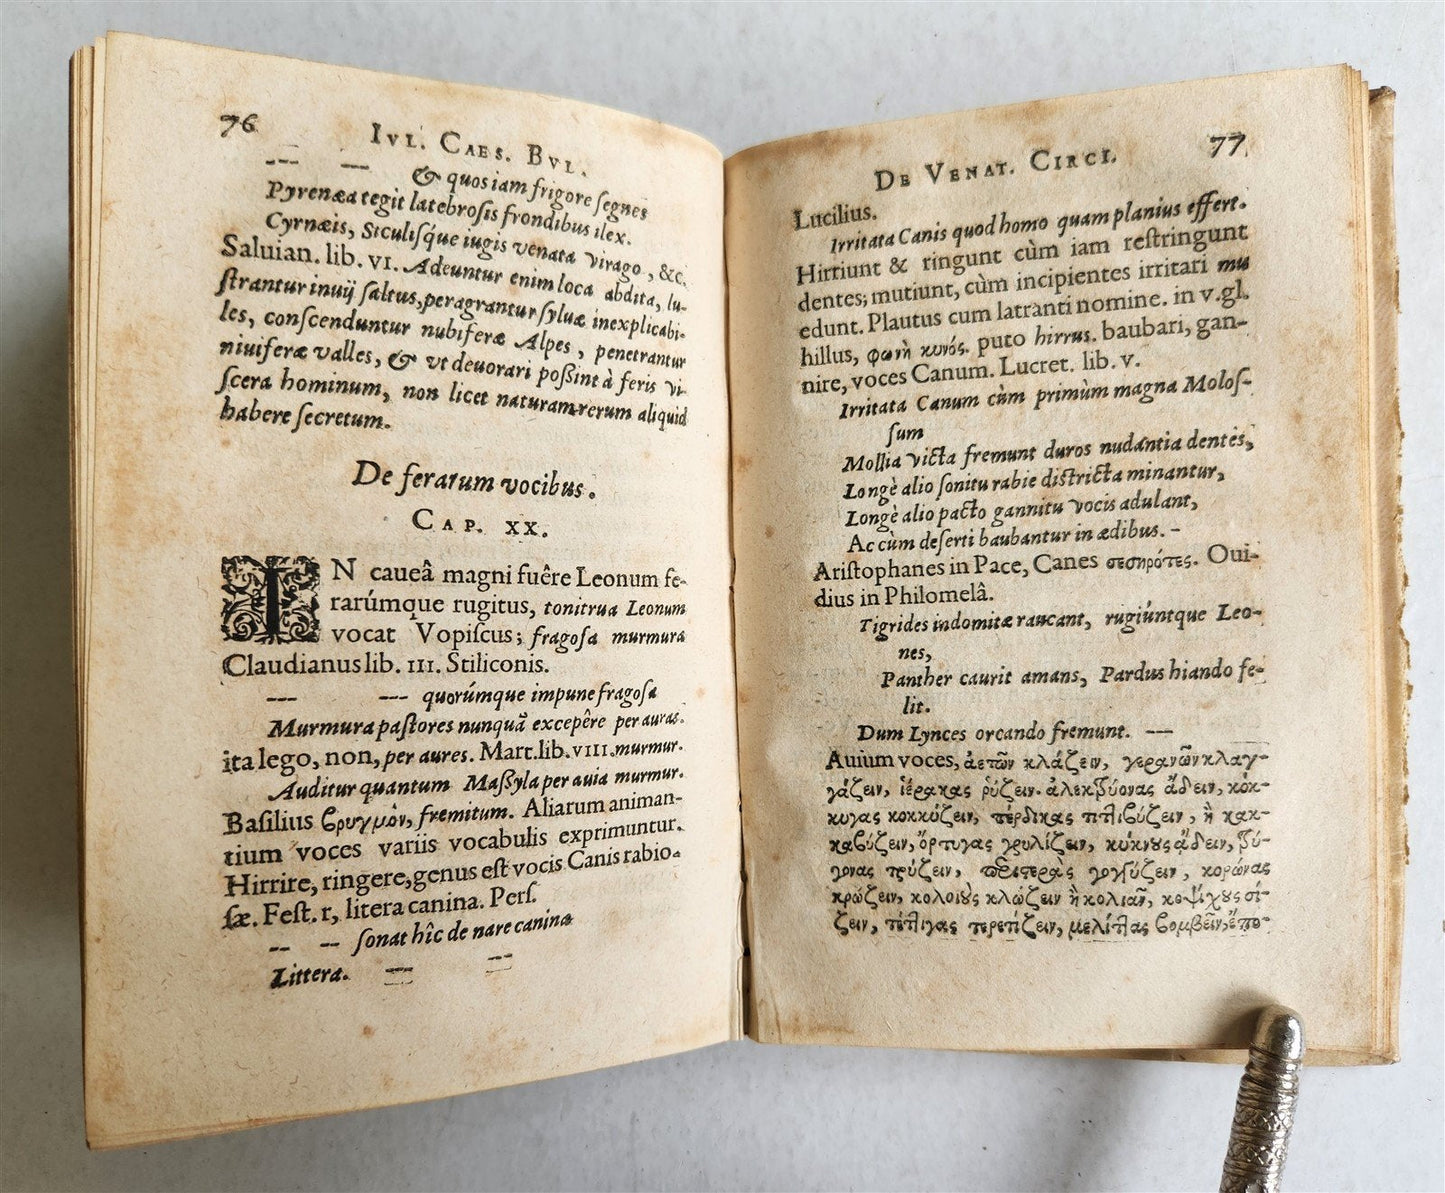 76
IVL. CAES. BVL.
-- -- & quos iam frigore ſegnes
Pyrenæa tegit latebroſis frondibus ilex.
Cyrnæis, Siculiſq́ue iugis venata virago, &c.
Saluian. lib. VI. Adeuntur enim loca abdita, lu-
ſtrantur inuij ſaltus, peragrantur ſyluæ inexplicabi-
les, conſcenduntur nubiferæ Alpes, penetrantur
niuiferæ valles, & vt deuorari poßint à feris vi-
ſcera hominum, non licet naturam rerum aliquid
habere ſecretum.
De ferarum vocibus.
CAP. XX.
IN caueâ magni fuêre Leonum fe-
rarúmque rugitus, tonitrua Leonum
vocat Vopiſcus; fragoſa murmura
Claudianus lib. III. Stiliconis.
-- -- quorúmque impune fragoſa
Murmura paſtores nunquã excepêre per auras.
ita lego, non, per aures. Mart. lib. VIII. murmur.
Auditur quantum Maßyla per auia murmur.
Baſilius βρυγμὸν, fremitum. Aliarum animan-
tium voces variis vocabulis exprimuntur.
Hirrire, ringere, genus eſt vocis Canis rabio-
ſæ. Feſt. r, litera canina. Perſ.
-- -- ſonat hîc de nare canina
Littera. -- --
77
DE VENAT. CIRCI.
Lucilius.
Irritata Canis quod homo quam planius effert.
Hirriunt & ringunt cùm iam reſtringunt
dentes; mutiunt, cùm incipientes irritari mu
edunt. Plautus cum latranti nomine. in v. gl.
hillus, φωνὴ κυνός. puto hirrus. baubari, gan-
nire, voces Canum. Lucret. lib. V.
Irritata Canum cùm primùm magna Moloſ-
ſum
Mollia victa fremunt duros nudantia dentes,
Longè alio ſonitu rabie diſtricta minantur,
Longè alio pacto gannitu vocis adulant,
Ac cùm deſerti baubantur in ædibus. -
Ariſtophanes in Pace, Canes σεσηρότες. Oui-
dius in Philomelâ.
Tigrides indomitæ raucant, rugiúntque Leo-
nes,
Panther caurit amans, Pardus hiando fe-
lit.
Dum Lynces orcando fremunt. --
Auium voces, ἀετῶν κλάζειν, γερανῶν κλαγ-
γάζειν, ἱέρακας ῥύζειν. ἀλεκτρύονας ᾄδειν, κόκ-
κυγας κοκκύζειν, πέρδικας τιτιβύζειν, ἢ κακ-
καβύζειν, ὄρτυγας γρυλίζειν, κύκνους ᾄδειν, τρύ-
γονας τρύζειν, περιστερὰς γογγύζειν, κορώνας
κρώζειν, κολοιοὺς κλώζειν ἢ κολιᾶν, κοψίχους σί-
ζειν, τέττιγας τερετίζειν, μελίττας βομβεῖν, ἔπο-